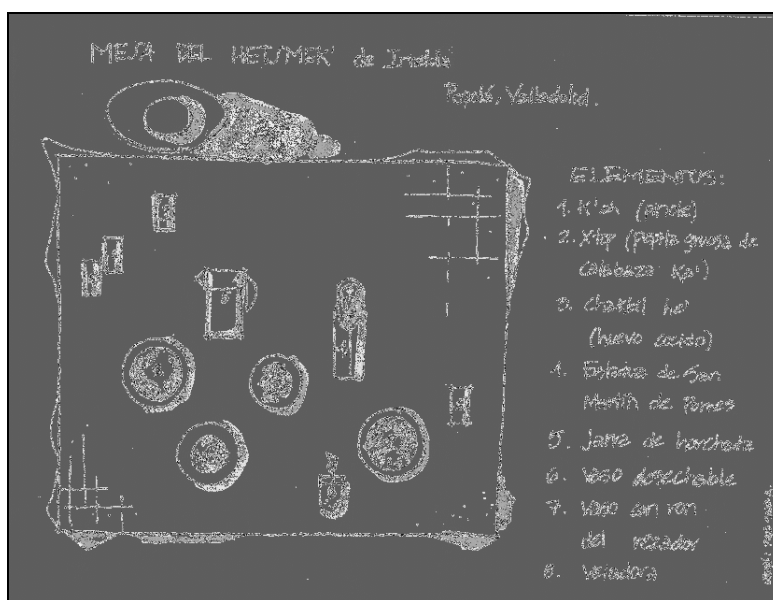 MESA DEL HETSMEK' de
Popolá, Valladolid.
ELEMENTOS:
1. K'ah (pinole)
2. X-top (pepita gruesa de
calabaza
3. Chakbil he'
(huevo cocido)
4. Estatua de San
Martín de Porres
5. Jarra de horchata
6. Vaso desechable
7. Vaso con ron
del rezador
8. Veladora